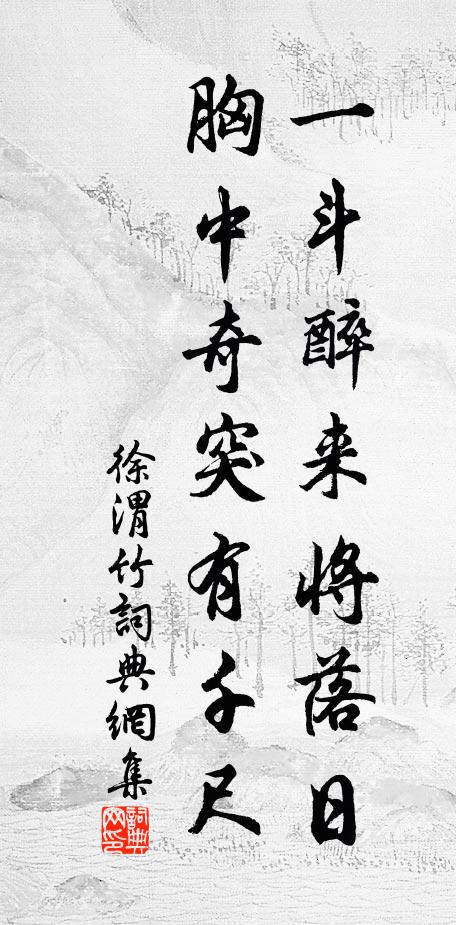 一斗醉来將落日
胸中奇突有千尺
徐渭竹詞典網集
詞典網印